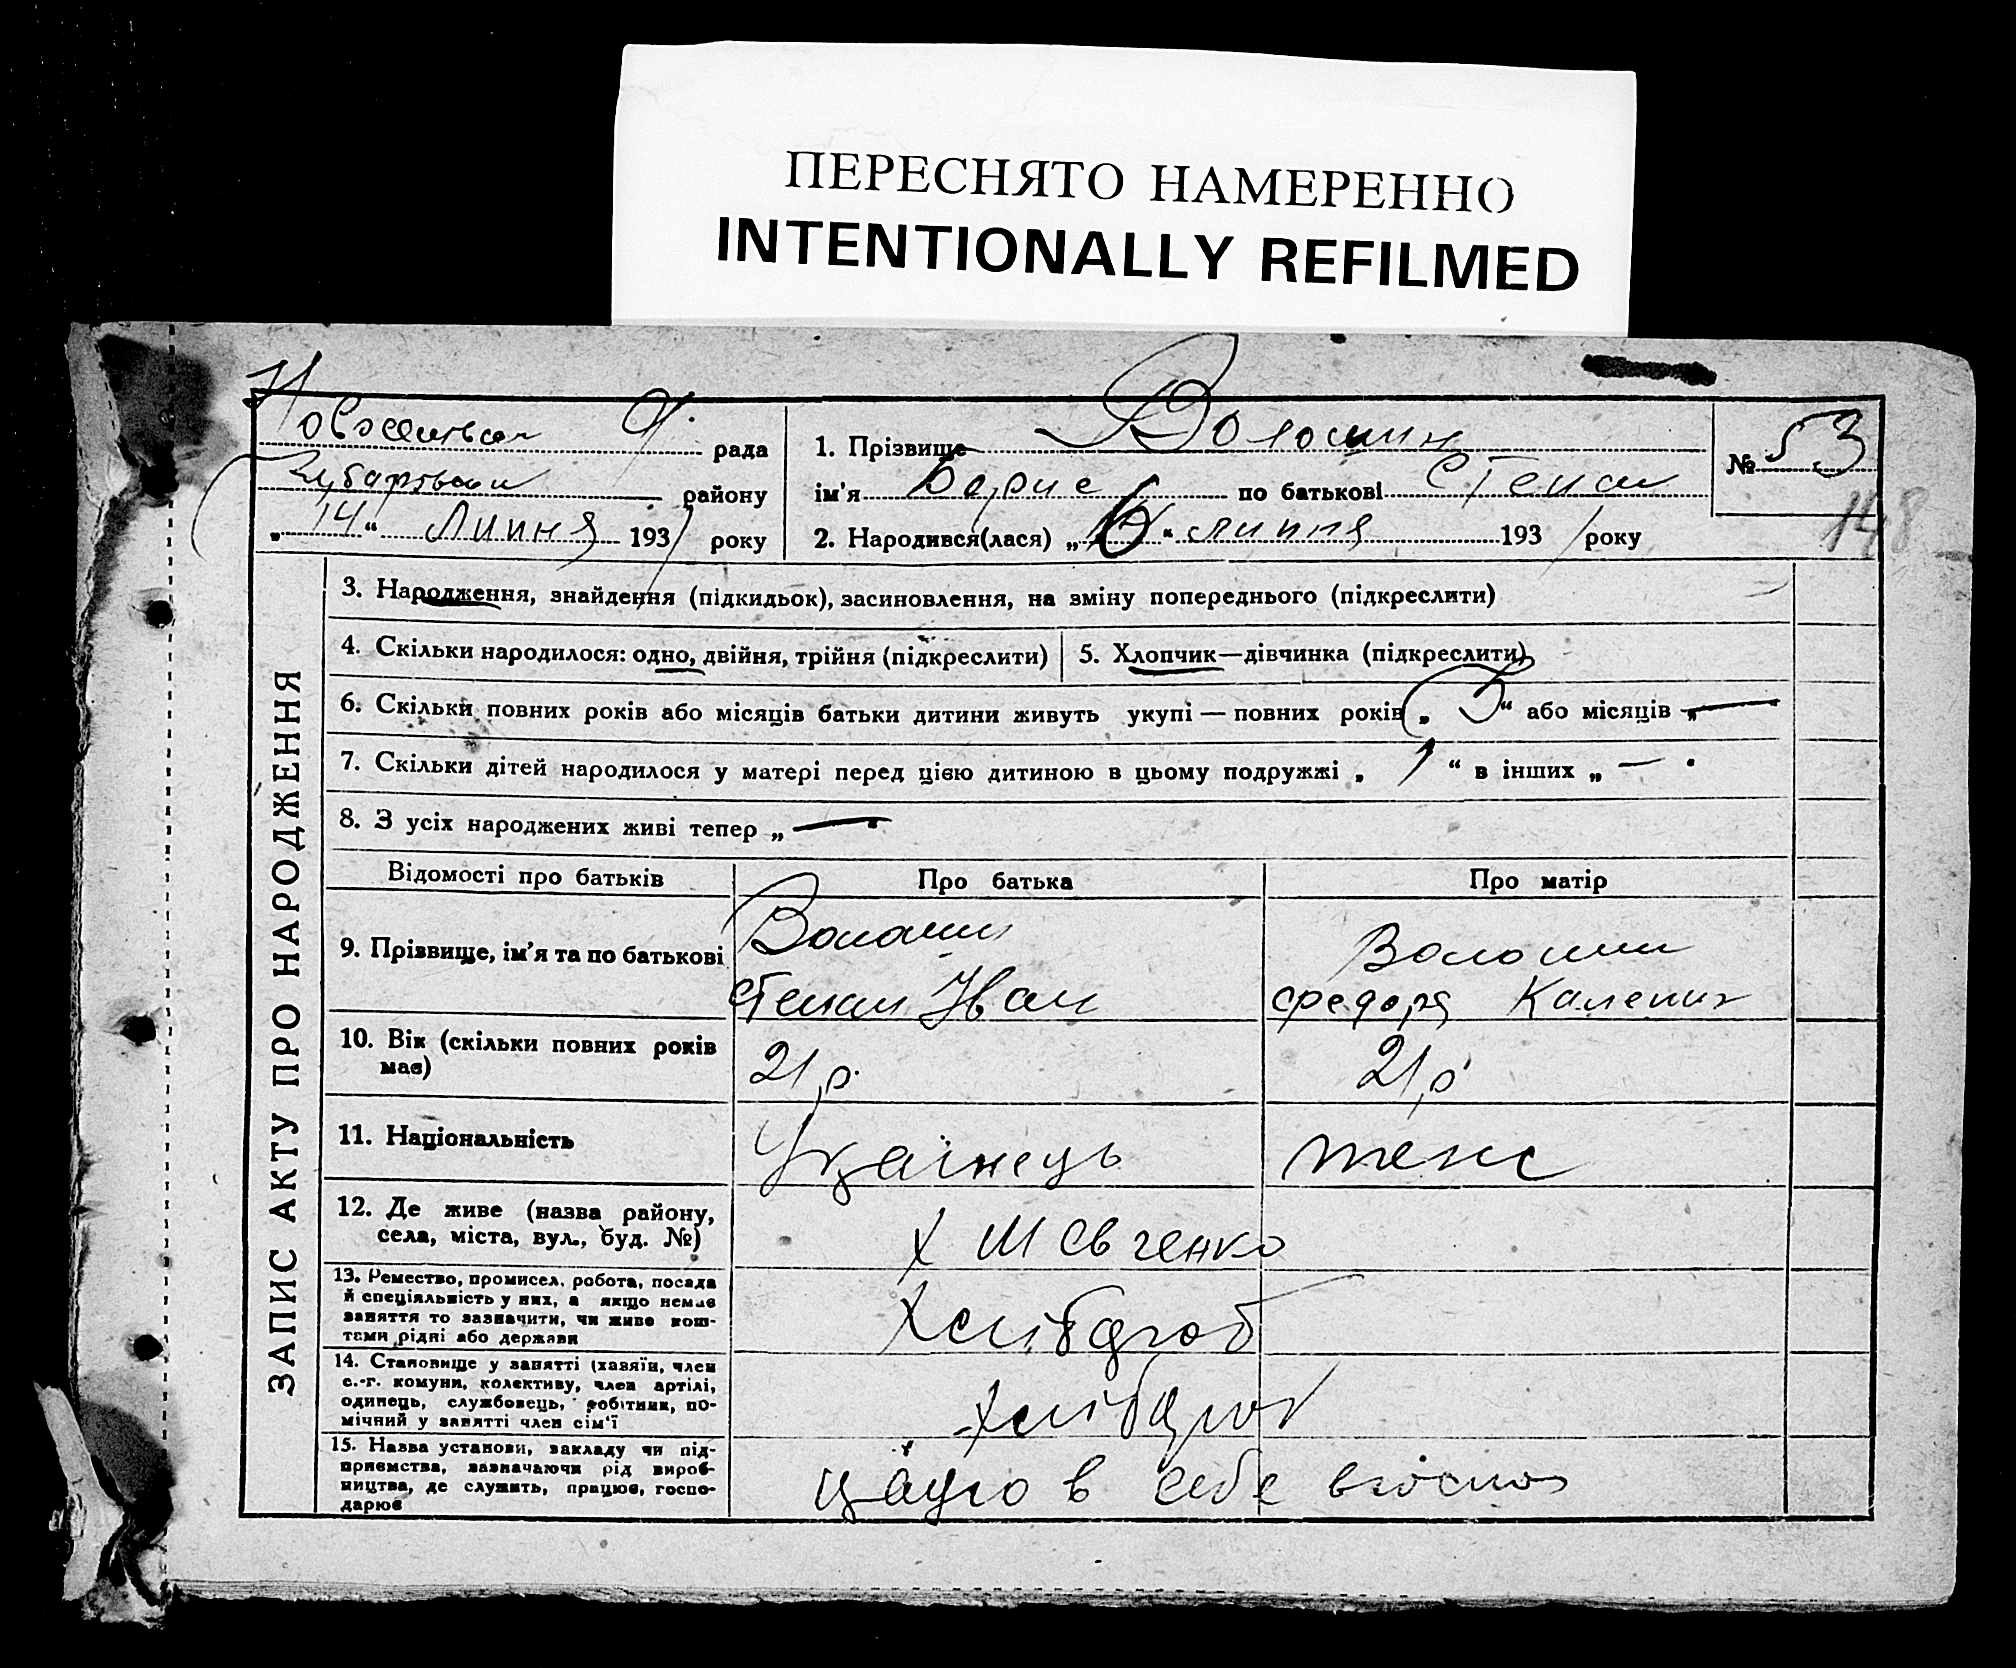 ПЕРЕСНЯТО НАМЕРЕННО
INTENTIONALLY REFILMED
рада
району
„ 14 “ Липня 1931 року
1. Прізвище Волошин
ім'я Борис по батькові Степан
2. Народився(лася) „ 6 “ липня 1931 року
№ 53
148
ЗАПИС АКТУ ПРО НАРОДЖЕННЯ
3. Народження, знайдення (підкидьок), засиновлення, на зміну попереднього (підкреслити)
4. Скільки народилося: одно, двійня, трійня (підкреслити)
5. Хлопчик—дівчинка (підкреслити)
6. Скільки повних років або місяців батьки дитини живуть укупі — повних років „ 3 “ або місяців „ —
7. Скільки дітей народилося у матері перед цією дитиною в цьому подружжі „ 1 “ в інших „ —
8. З усіх народжених живі тепер „ —
Відомості про батьків
Про батька
Про матір
9. Прізвище, ім'я та по батькові
Волошин
Степан Иван
Волошин
Федора Калених
10. Вік (скільки повних років
має)
21 р.
21 р
11. Національність
Українець
тенс
12. Де живе (назва району,
села, міста, вул., буд. №)
х Шевченко
13. Ремество, промисел, робота, посада
й спеціяльність у них, а якщо немає
заняття то зазначити, чи живе кош-
тами рідні або держави
Хлібороб
14. Становище у занятті (хазяїн, член
с.-г. комуни, колективу, член артілі,
одинець, службовець, робітник, по-
мічний у занятті член сім'ї
хлібороб
15. Назва установи, закладу чи під-
приємства, зазначаючи рід вироб-
ництва, де служить, працює, госпо-
дарює
в себе в госпо